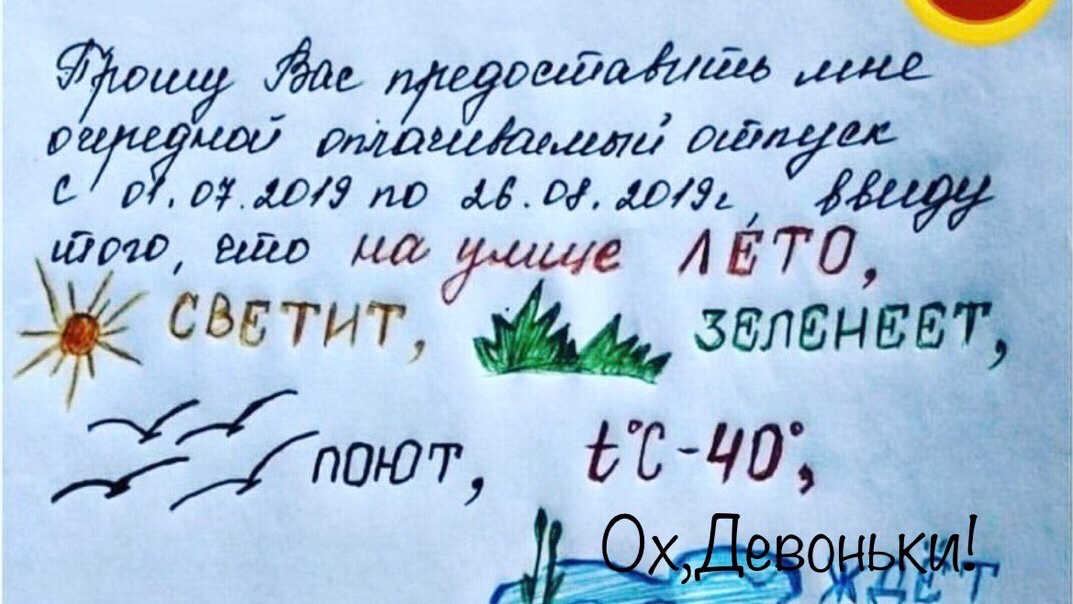 Прошу Вас предоставить мне
очередной оплачиваемый отпуск
с 01.07.2019 по 26.08.2019г, ввиду
того, что на улице ЛЕТО,
СВЕТИТ, ЗЕЛЕНЕЕТ,
ПОЮТ, t°C-40°,
Ох,Девоньки!
ЖДЁТ